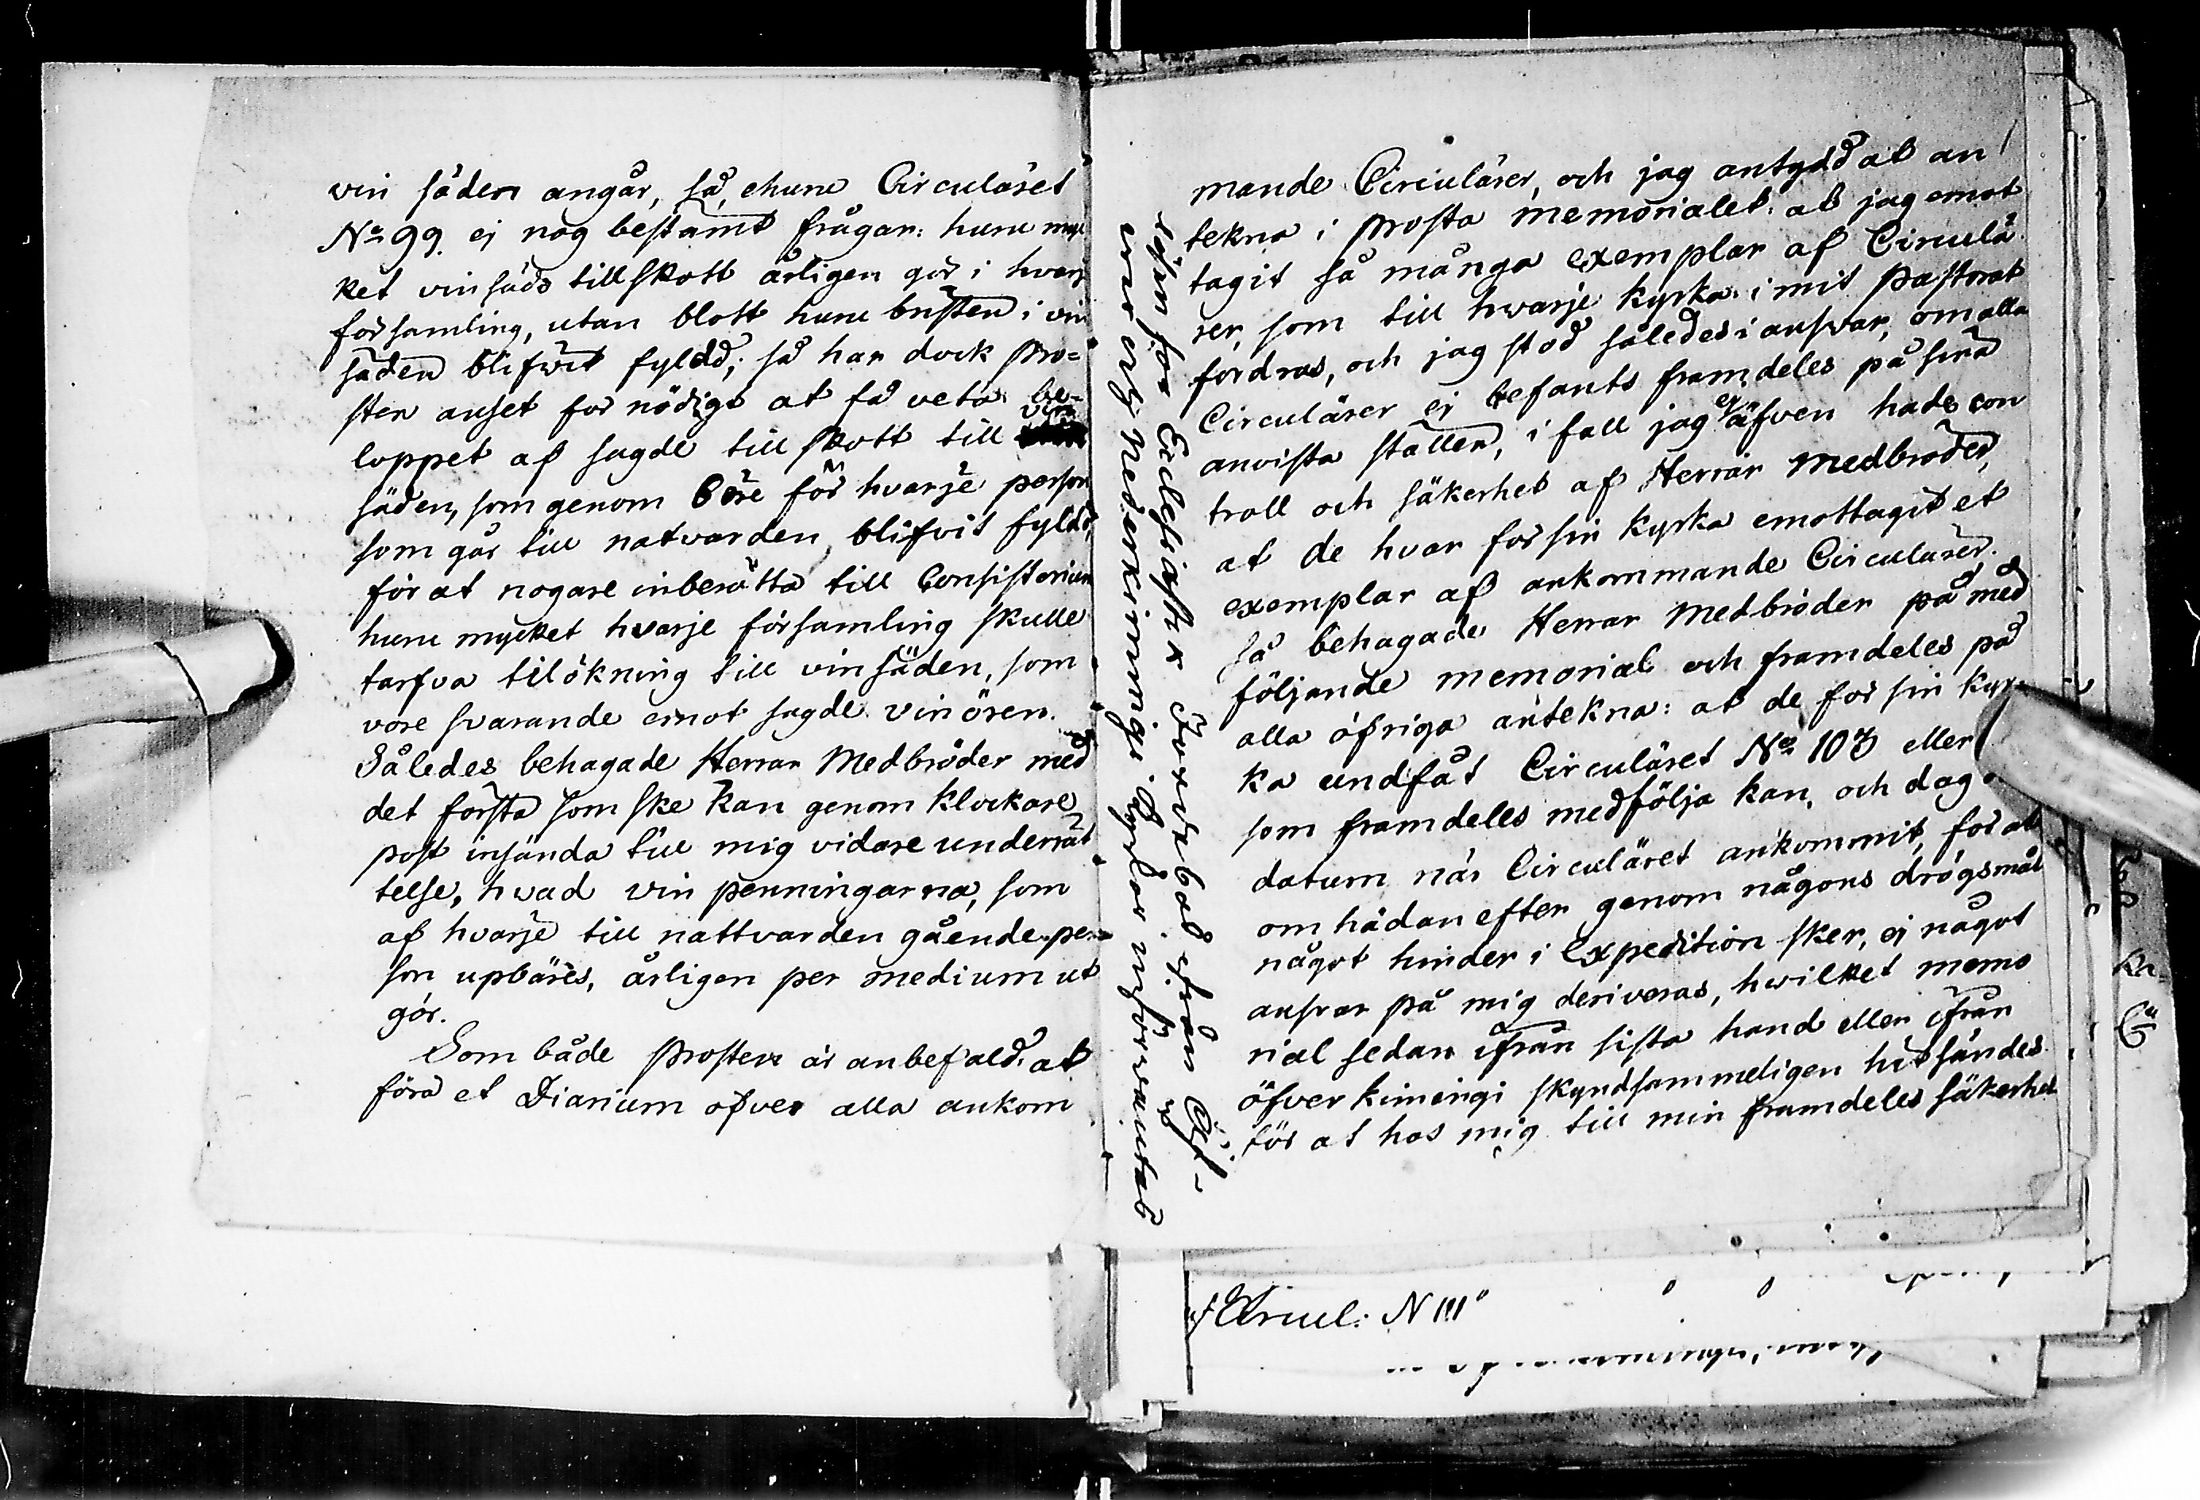 vin säden angår, så, ehuru Circuläret
No 99. ej nog bestämt frågar: huru myc
ket vinsäds tillskott årligen gör i hvarj
församling, utan blott huru bristen i vin
säden blifwit fyldd; så har dock Pro=
sten anset för nödigt at få veta be-
loppet af sagde tillskott till vin
säden, som genom 6 öre för hvarje person
som går till natvarden, blifvit fyldt,
för at nogare inberätta till Consistorium
huru mycket hvarje församling skulle
tarfva tilökning till vinsäden, som
vore svarande emot sagde vinören.
Således behagade Herrar Medbröder med
det första som ske kan genom klockare
post insända till mig vidare underrät
telse, hwad vin penningarna, som
af hvarje till nattvarden gående per-
son upbäres, årligen per medium ut
gör.
Som både Prosten är anbefald at
föra et Diarium öfver alla ankom
mande Circulärer, och jag antydd at an
tekna i Prosta memorialet: at jag emot
tagit så många exemplar af Circulä
rer, som till hwarje kyrka i mit Pastorat
fordras, och jag stod således i answar, om alla
Circulärer ej befants framdeles på sina
anvista ställen, i fall jag ej äfven hade con
troll och säkerhet af Herrar Medbröder,
at de hvar för sin kyrka emottagit et
exemplar af ankommande Circulärer.
Så behagade Herrar Medbröder på med
följande memorial och framdeles på
alla öfriga antekna: at de för sin kyr-
ka undfåt Circuläret No 103 eller
som framdeles medfölja kan, och dag
datum när Circuläret ankommit, för at
om hädan efter genom någons drögsmål
något hinder i Expedition sker, ej något
ansvar på mig deriveras, hwilket memo
rial sedan ifrån sista hand eller ifrån
öfverkiminigi skyndsammeligen hitsändes
för at hos mig till min framdeles säkerhet
Circul: N 111